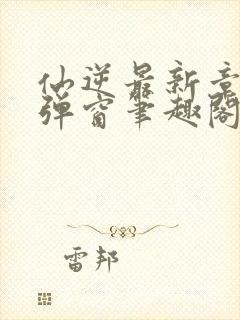 仙逆最新章
弹窗笔趣阁
雷邦